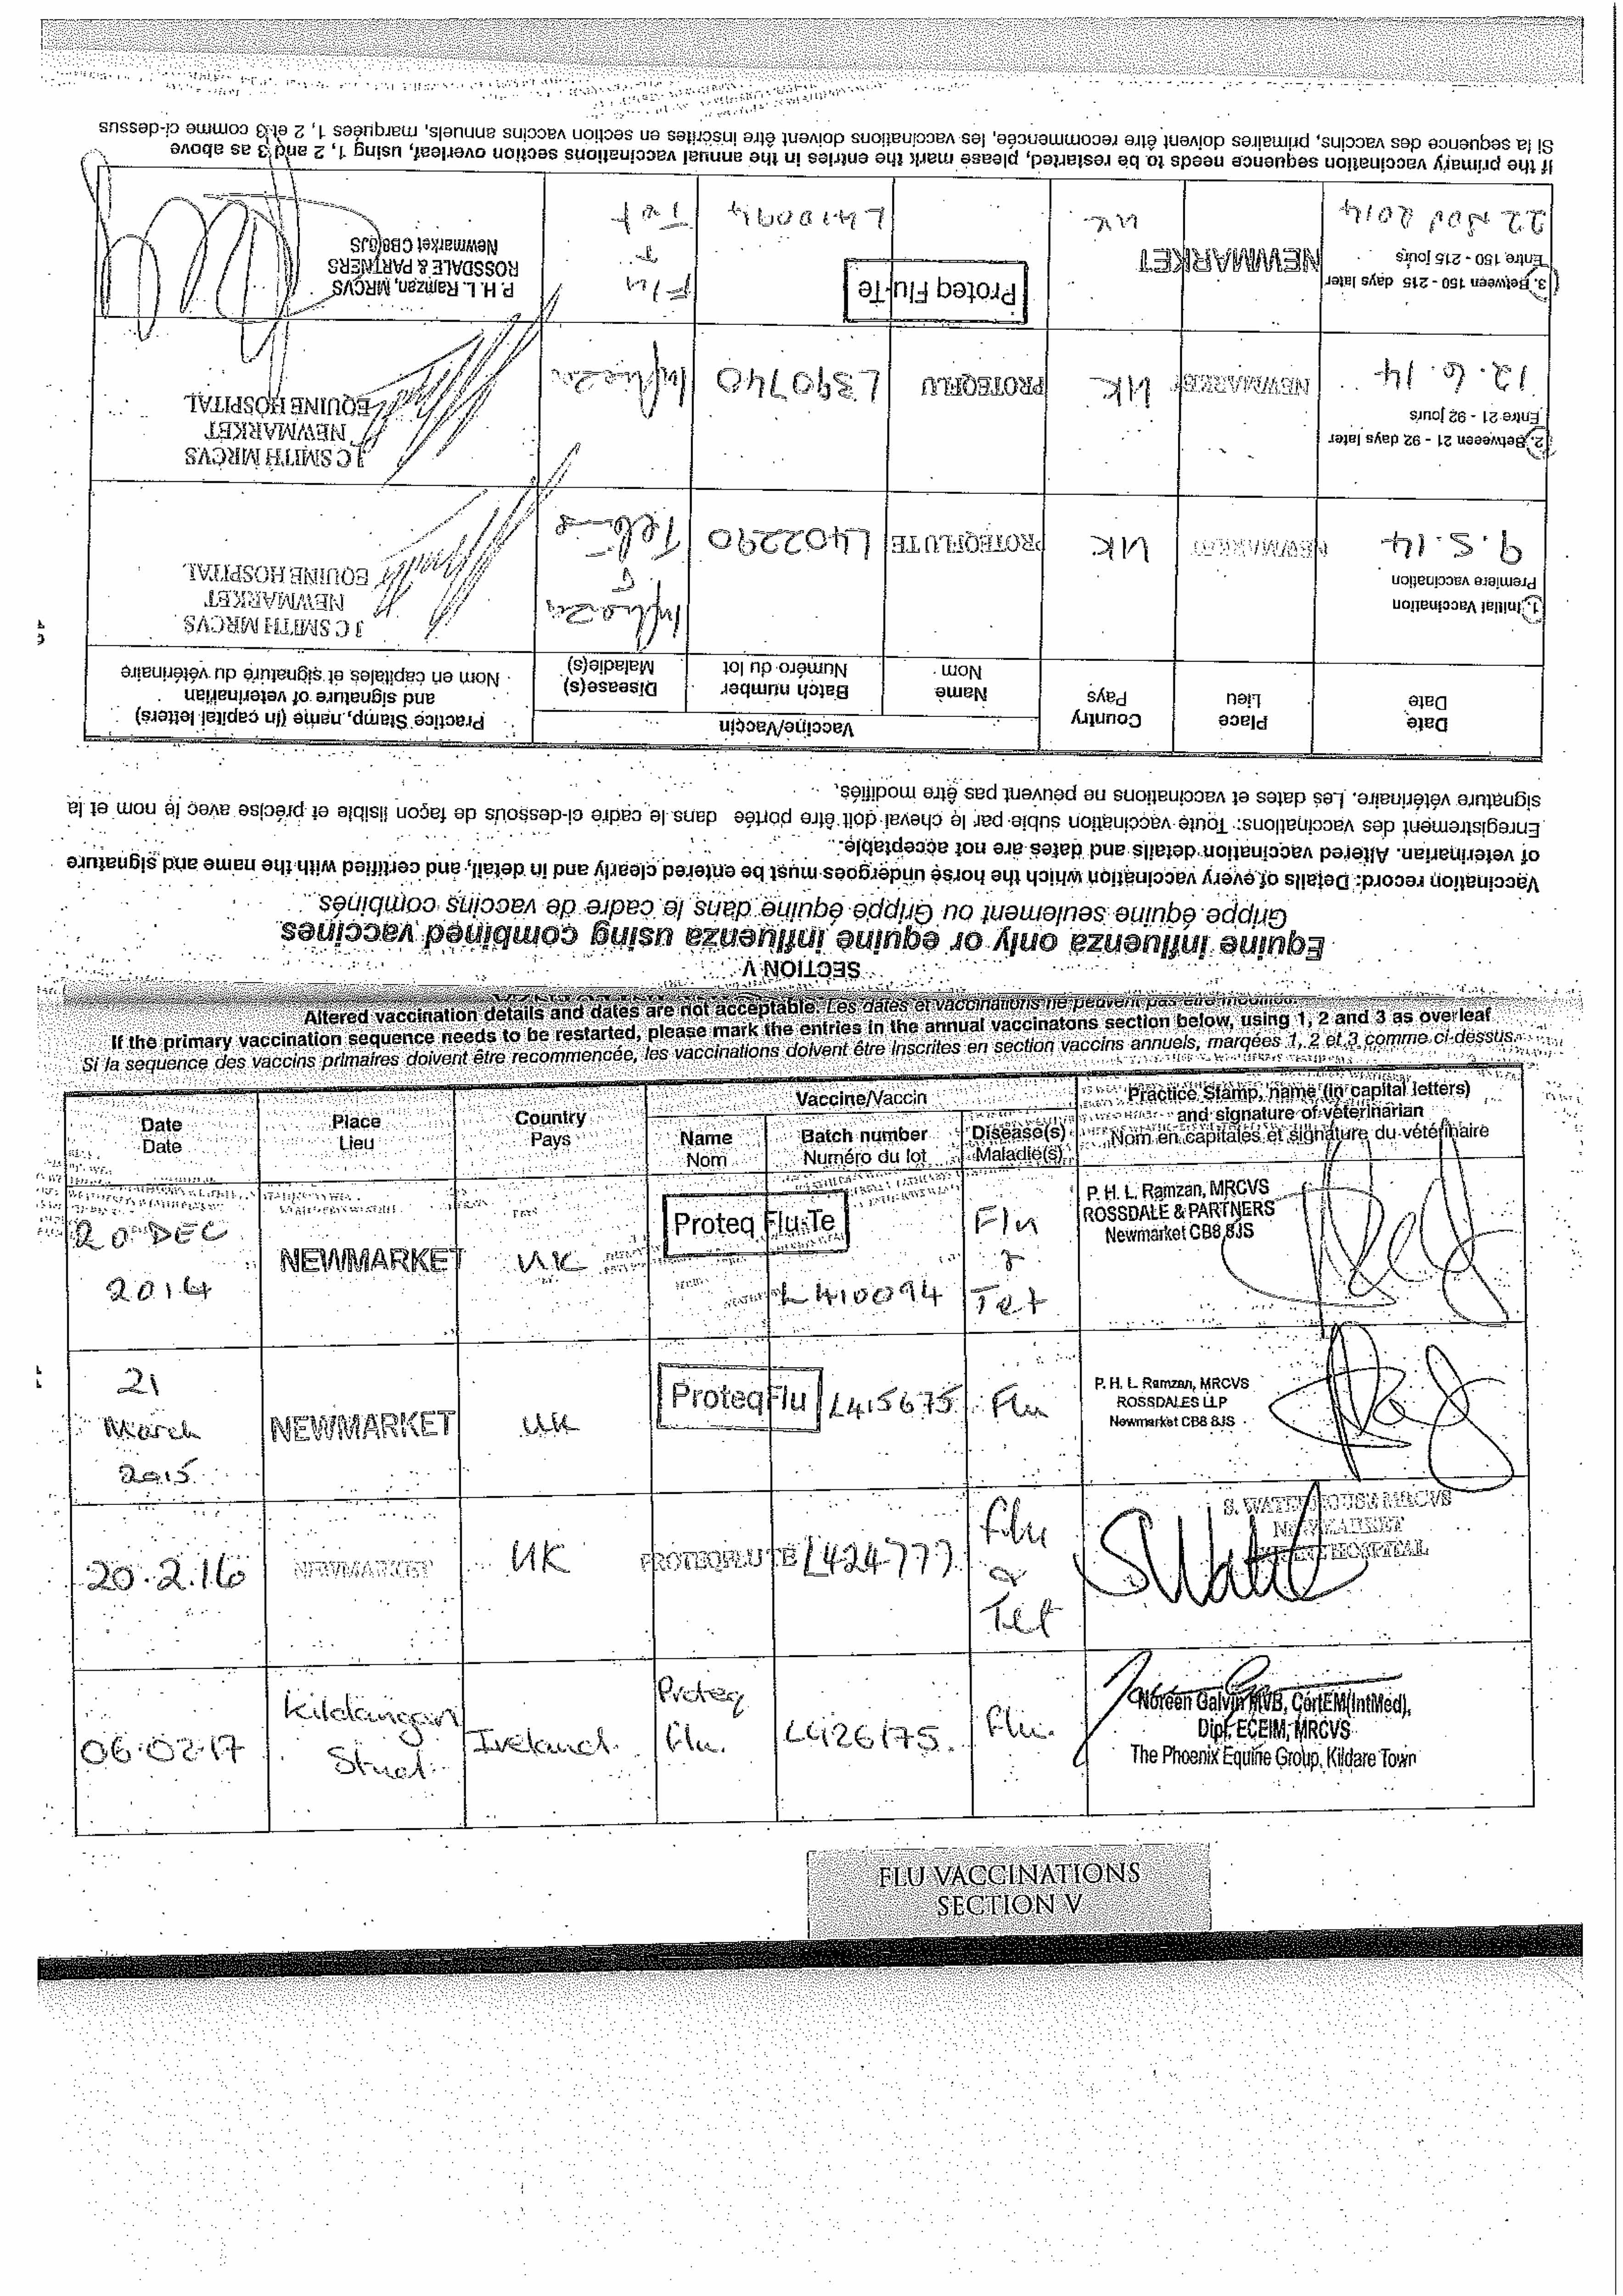 SECTION V
Equine influenza only or equine influenza using combined vaccines
Grippe équine seulement ou Grippe équine dans le cadre de vaccins combinés
Vaccination record: Details of every vaccination which the horse undergoes must be entered clearly and in detail, and certified with the name and signature
of veterinarian. Altered vaccination details and dates are not acceptable.
Enregistrement des vaccinations: Toute vaccination subie par le cheval doit être portée dans le cadre ci-dessous de façon lisible et précise avec le nom et la
signature vétérinaire. Les dates et vaccinations ne peuvent pas être modifiés.
Date Place Country Vaccine/Vaccin Practice Stamp, name (in capital letters)
Date Lieu Pays Name Batch number Disease(s) and signature of veterinarian
Nom Numéro du lot Maladie(s) Nom en capitales et signature du vétérinaire
1. Initial Vaccination
Première vaccination
9.5.14 NEWMARKET UK PROTEQFLUTE L402290
J C SMITH MRCVS
NEWMARKET
EQUINE HOSPITAL
2. Betweeen 21 - 92 days later
Entre 21 - 92 jours
12.6.14 NEWMARKET UK PROTEQFLU L390740
J C SMITH MRCVS
NEWMARKET
EQUINE HOSPITAL
3. Between 150 - 215 days later
Entre 150 - 215 jours
22 Nov 2014 NEWMARKET UK Proteq Flu-Te L410094 Flu
Tet
P. H. L. Ramzan, MRCVS
ROSSDALE & PARTNERS
Newmarket CB8 8JS
If the primary vaccination sequence needs to be restarted, please mark the entries in the annual vaccinations section overleaf, using 1, 2 and 3 as above
Si la sequence des vaccins, primaires doivent être recommencée, les vaccinations doivent être inscrites en section vaccins annuels, marquées 1, 2 et 3 comme ci-dessus
Altered vaccination details and dates are not acceptable. Les dates et vaccinations ne peuvent pas être modifiés.
If the primary vaccination sequence needs to be restarted, please mark the entries in the annual vaccinatons section below, using 1, 2 and 3 as overleaf
Si la sequence des vaccins primaires doivent être recommencée, les vaccinations doivent être inscrites en section vaccins annuels, marqées 1, 2 et 3 comme ci-dessus.
Date Place Country Vaccine/Vaccin Practice Stamp, name (in capital letters)
Date Lieu Pays Name Batch number Disease(s) and signature of veterinarian
Nom Numéro du lot Maladie(s) Nom en capitales et signature du vétérinaire
20 DEC
2014 NEWMARKET UK Proteq Flu-Te L410094 Flu
&
Tet
P. H. L. Ramzan, MRCVS
ROSSDALE & PARTNERS
Newmarket CB8 8JS
21
March
2015 NEWMARKET UK ProteqFlu L415675 Flu
P. H. L. Ramzan, MRCVS
ROSSDALES LLP
Newmarket CB8 8JS
20.2.16 NEWMARKET UK PROTEQFLUTE L424777 Flu
&
Tet
S. WATERHOUSE MRCVS
NEWMARKET
HOSPITAL
06.02.17 Kildangan
Stud Ireland Proteq
Flu. L426175. Flu.
Noreen Galvin MVB, CertEM(IntMed),
Dipl. ECEIM, MRCVS
The Phoenix Equine Group, Kildare Town
FLU VACCINATIONS
SECTION V